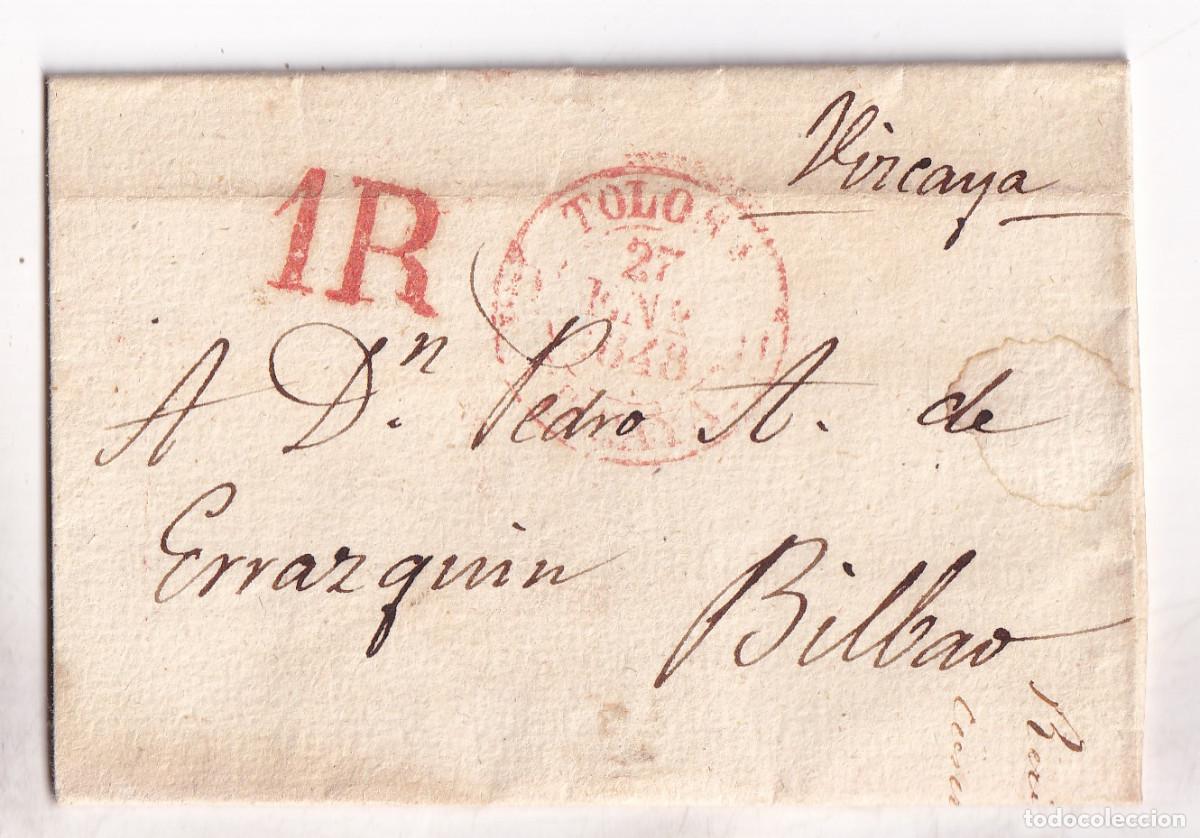 Vizcaya
1R
TOLOSA
27
ENE
1848
A Dn. Pedro A. de
Errazquin
Bilbao
todocoleccion